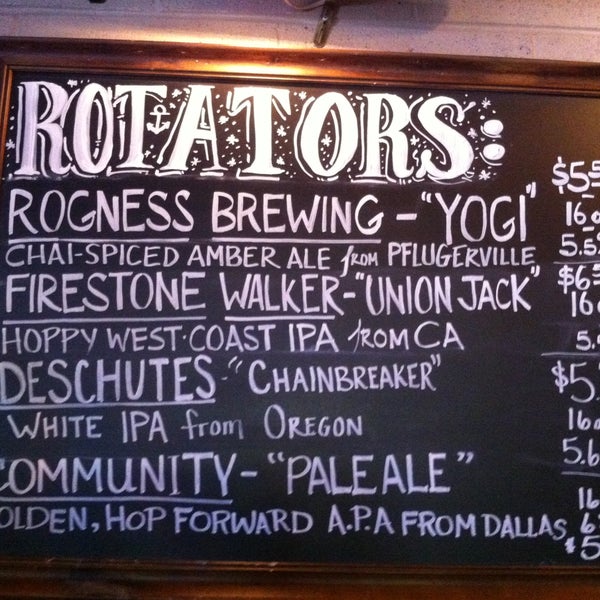 ROTATORS:
ROGNESS BREWING - "YOGI" $5.5
CHAI-SPICED AMBER ALE from PFLUGERVILLE 5.5
FIRESTONE WALKER - "UNION JACK" $6
HOPPY WEST-COAST IPA from CA
DESCHUTES - "CHAINBREAKER" $5
WHITE IPA from OREGON 5.6
COMMUNITY - "PALE ALE" 16
OLDEN, HOP FORWARD A.P.A FROM DALLAS $5